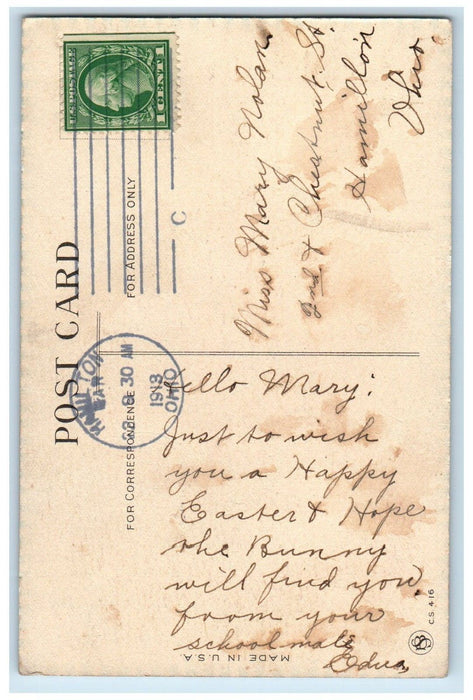 U.S. POSTAGE
1 CENT 1
C
POST CARD
FOR ADDRESS ONLY
FOR CORRESPONDENCE
HAMILTON
MAR
22
8 30 AM
1913
OHIO
Miss Mary Nolan
2nd & Chestnut St.
Hamilton
Ohio.
Hello Mary:
Just to wish
you a Happy
Easter & Hope
the Bunny
will find you
from your
schoolmate
Edna
MADE IN U.S.A.
C.S. 416